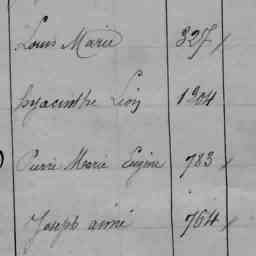 Louis Marie 327 /
hyacinthe Léon 1304
Pierre Marie Eugène 783 /
Joseph aimé 764 /